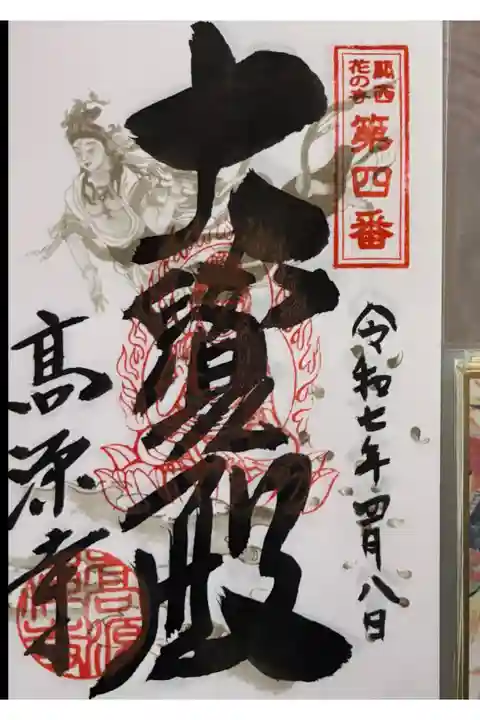 関西
花の寺
第四番
令和七年四月八日
大寶殿
髙源寺